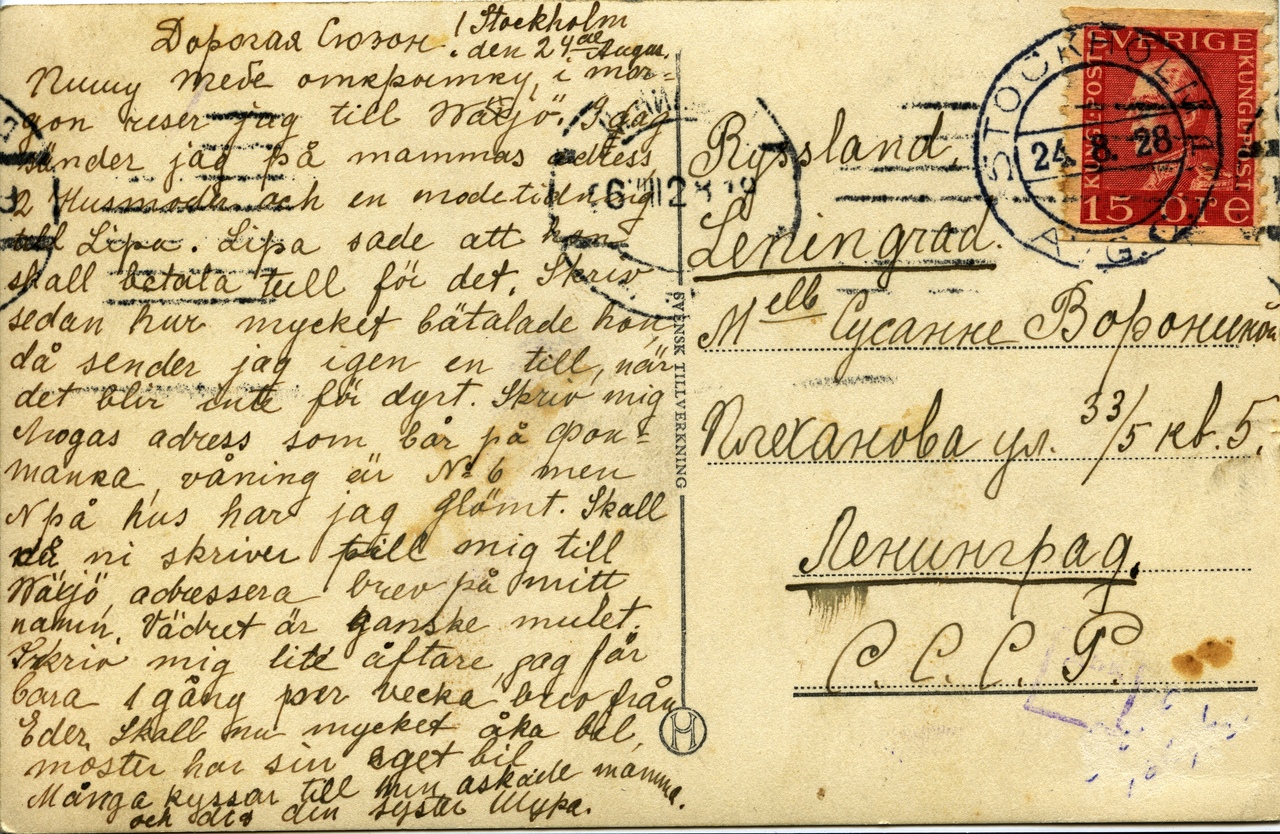 Дорогая Сюзон!
Stockholm
den 24de Augus.
Пишу тебе открытку, i mor-
gon reser jag till Wäxjö. I dag
sänder jag på mammas adress
2 Husmoder och en modetidning
till Lipa. Lipa sade att hon
skall betala tull för det. Skriv
sedan hur mycket bätalade hon,
då sender jag igen en till, när
det blir inte för dyrt. Skriv mig
adress som bår på Фон-
манка, våning är № 6 men
N på hus har jag glömt. Skall
ni skriver till mig till
Wäxjö, adressera brev på mitt
namn. Vädret är ganske mulet.
Skriv mig lite åftare, jag får
bara 1 gång per vecka brev från
Eder. Skall nu mycket åka bil,
moster har sin eget bil
Många kyssar till min äskade mamma.
och din systar Шура.
SVENSK TILLVERKNING
Ryssland,
Leningrad.
Melle Сусанне Ворониной
Плеханова ул. 33/5 кв. 5.
Ленинград.
С. С. С. Р.
SVERIGE
KUNGL POST
KUNGL POST
15 ÖRE
STOCKHOLM
24. 8. 28
H